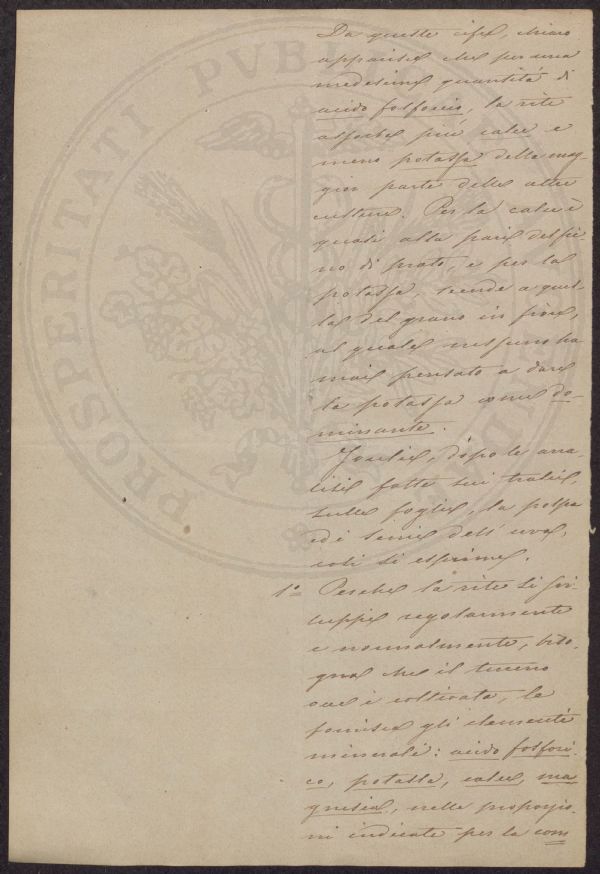 PROSPERITATI PVBL
Da queste cifre, chiaro
apparisce che per una
medesima quantità di
acido fosforico, la vite
assorbe più calce e
meno potassa della mag-
gior parte delle altre
culture. Per la calce è
quasi alla pari del fie-
no di prato, e per la
potassa tende a quel-
la del grano in fiore,
al quale nessuno ha
mai pensato a dare
la potassa come do-
minante.
dopo le ana-
lisi fatte sui tralci,
sulle foglie, la polpa
ed i semi dell'uva,
così si esprime.
1º Perchè la vite si svi-
luppi regolarmente
e normalmente, biso-
gna che il terreno
ove è coltivata, le
fornisca gli elementi
minerali: acido fosfori-
co, potassa, calce, ma
gnesia, nelle proporzio-
ni indicate per la com